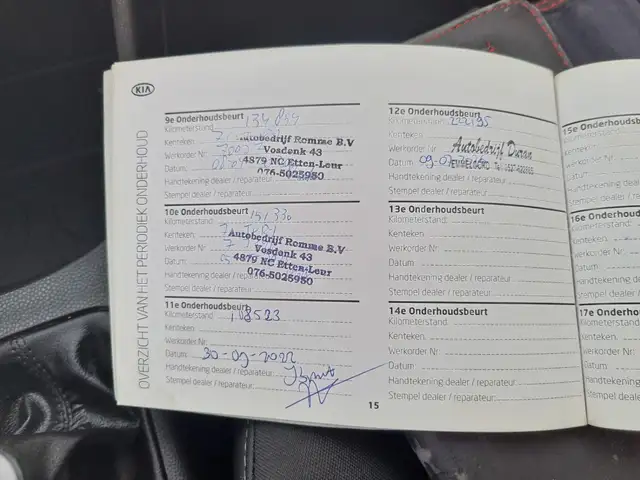 KIA
OVERZICHT VAN HET PERIODIEK ONDERHOUD
9e Onderhoudsbeurt
Kilometerstand
Kenteken
Werkorder Nr.
Datum
Handtekening dealer / reparateur
Stempel dealer / reparateur
Autobedrijf Romme B.V
Vosdonk 43
4879 NC Etten-Leur
076-5025950
10e Onderhoudsbeurt
Kilometerstand
Kenteken
Werkorder Nr.
Datum
Handtekening dealer / reparateur
Stempel dealer / reparateur
Autobedrijf Romme B.V
Vosdonk 43
4879 NC Etten-Leur
076-5025950
11e Onderhoudsbeurt
Kilometerstand
Kenteken
Werkorder Nr.
Datum 30-09-2022
Handtekening dealer / reparateur
Stempel dealer / reparateur
15
12e Onderhoudsbeurt
Kilometerstand
Kenteken
Werkorder Nr.
Datum
Autobedrijf Duran
Handtekening dealer / reparateur
Stempel dealer / reparateur
13e Onderhoudsbeurt
Kilometerstand
Kenteken
Werkorder Nr.
Datum
Handtekening dealer / reparateur
Stempel dealer / reparateur
14e Onderhoudsbeurt
Kilometerstand
Kenteken
Werkorder Nr.
Datum
Handtekening dealer / reparateur
Stempel dealer / reparateur
15e Onderhoudsbe
Kilometerstand
Kenteken
Werkorder Nr.
Datum
Handtekening dealer
Stempel dealer / re
16e Onderho
Kilometerstand
Kenteken
Werkorder Nr.
Datum
Handtekening
Stempel dealer
17e Onder
Kilometerst
Kenteken
Werkorder
Datum
Handteken
Stempel de